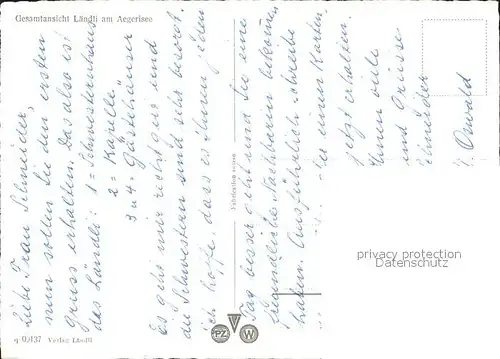 Gesamtansicht Ländli am Aegerisee
Liebe Frau Schneider,
nun sollen Sie den ersten
Gruss erhalten. Das also ist
das Ländli: 1 = Schwesternhaus
2 = Kapelle
3 u 4 = Gästehäuser
Es geht mir recht gut und
die Schwestern sind sehr besorgt.
ich hoffe, dass es Ihnen jeden
Tag besser geht und Sie eine
freundliche Nachbarin bekommen
haben. Ausführlich schreibe
einen Karten
jetzt erhalten.
Ihnen viele
und Grüsse
Schneider
Oswald
Fabrication suisse
q 09137 Verlag Ländli
PZ W
privacy protection
Datenschutz